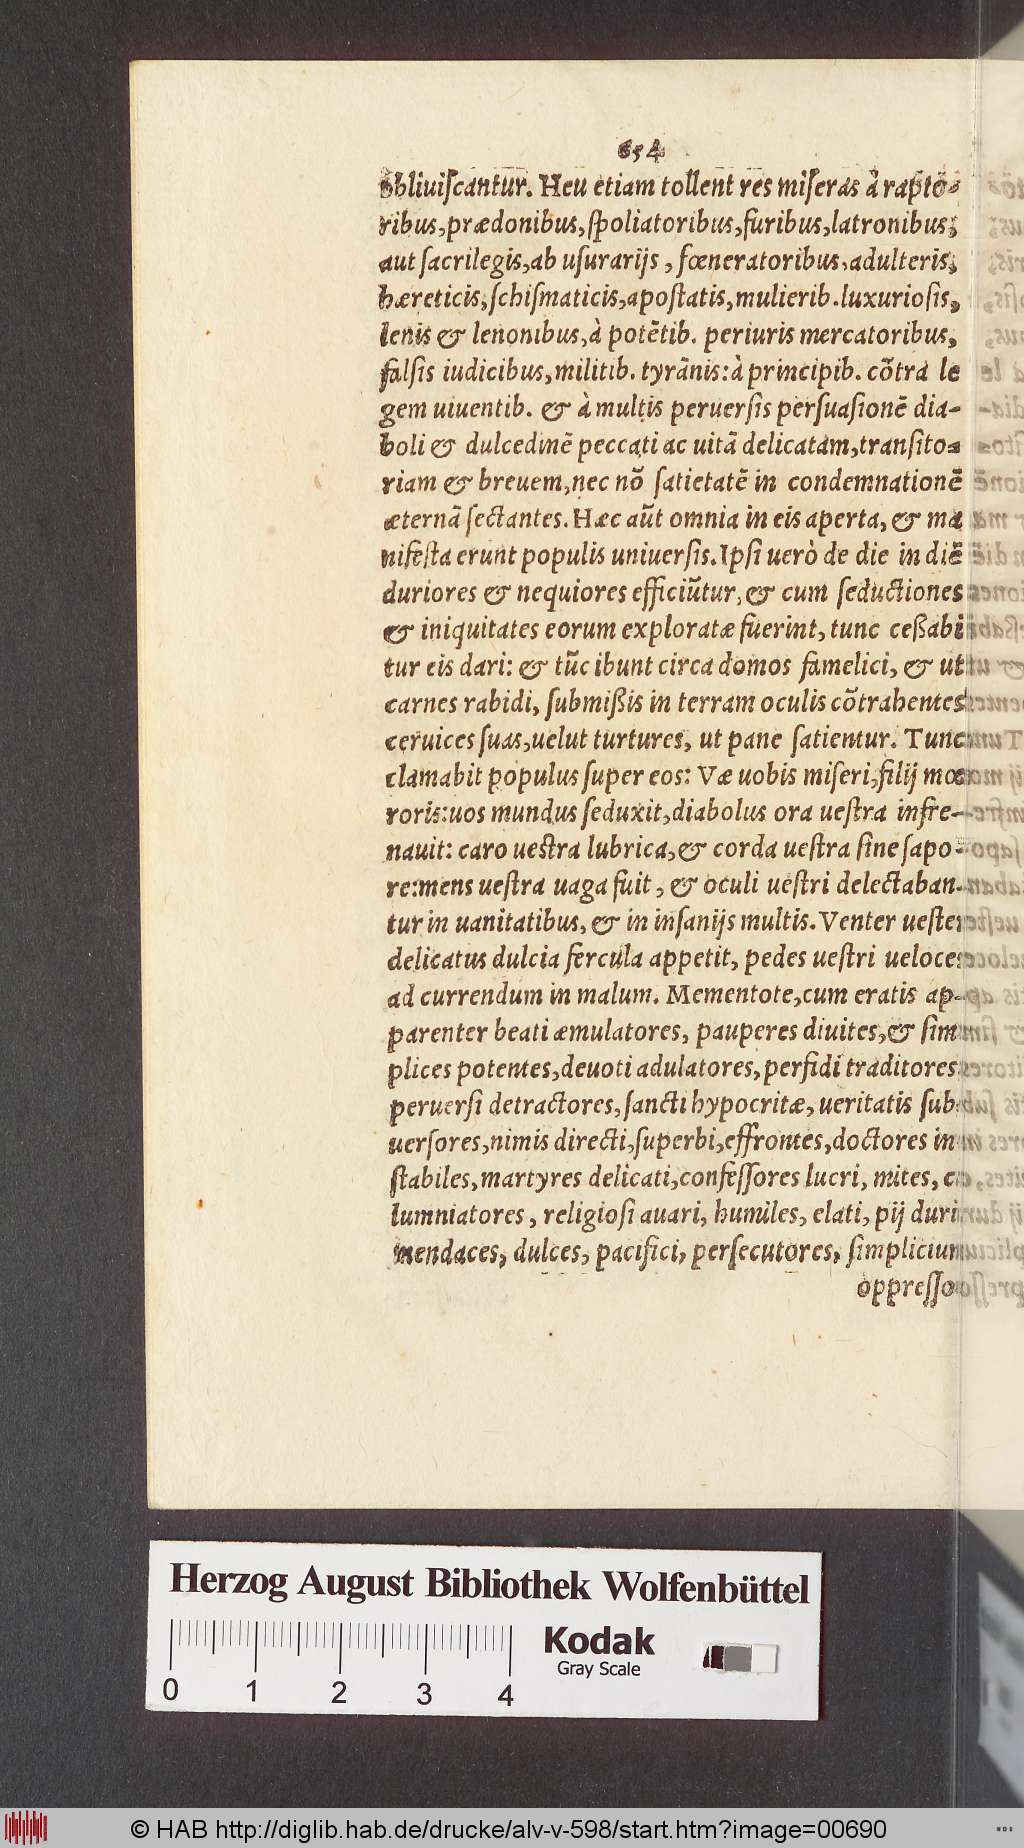 654
obliuiſcantur. Heu etiam tollent res miſeras à rapto-
ribus, prædonibus, ſpoliatoribus, furibus, latronibus,
aut ſacrilegis, ab uſurarijs, fœneratoribus, adulteris,
hæreticis, ſchiſmaticis, apoſtatis, mulierib. luxurioſis,
lenis & lenonibus, à potētib. periuris mercatoribus,
falſis iudicibus, militib. tyrānis: à principib. cōtra le
gem uiuentib. & à multis peruerſis perſuaſionē dia-
boli & dulcedinē peccati ac uitā delicatam, tranſito-
riam & breuem, nec nō ſatietatē in condemnationē
æternā ſectantes. Hæc aūt omnia in eis aperta, & ma
nifeſta erunt populis uniuerſis. Ipſi uerò de die in diē
duriores & nequiores efficiūtur, & cum ſeductiones
& iniquitates eorum exploratæ fuerint, tunc ceßabi
tur eis dari: & tūc ibunt circa domos famelici, & ut
carnes rabidi, ſubmißis in terram oculis cōtrahentes
ceruices ſuas, uelut turtures, ut pane ſatientur. Tunc
clamabit populus ſuper eos: Væ uobis miſeri, filij mœ
roris: uos mundus ſeduxit, diabolus ora ueſtra infre-
nauit: caro ueſtra lubrica, & corda ueſtra ſine ſapo-
re: mens ueſtra uaga fuit, & oculi ueſtri delectaban-
tur in uanitatibus, & in inſanijs multis. Venter ueſter
delicatus dulcia fercula appetit, pedes ueſtri ueloces
ad currendum in malum. Mementote, cum eratis ap-
parenter beati æmulatores, pauperes diuites, & ſim
plices potentes, deuoti adulatores, perfidi traditores
peruerſi detractores, ſancti hypocritæ, ueritatis ſub
uerſores, nimis directi, ſuperbi, effrontes, doctores in
ſtabiles, martyres delicati, confeſſores lucri, mites, ca
lumniatores, religioſi auari, humiles, elati, pij duri
mendaces, dulces, pacifici, perſecutores, ſimplicium
oppreſſo
Herzog August Bibliothek Wolfenbüttel
Kodak
Gray Scale
0 1 2 3 4
© HAB http://diglib.hab.de/drucke/alv-v-598/start.htm?image=00690